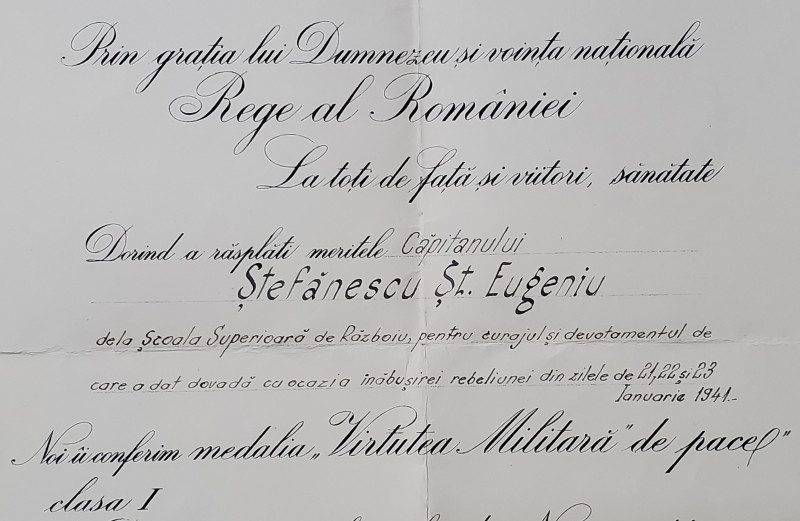 Prin grația lui Dumnezeu și voința națională
Rege al României
La toți de față și viitori, sănătate
Dorind a răsplăti meritele Căpitanului
Ștefănescu Șt. Eugeniu
dela Școala Superioară de Războiu, pentru curajul și devotamentul de
care a dat dovadă cu ocazia înăbușirei rebeliunei din zilele de 21, 22 și 23
Ianuarie 1941.-
Noi îi conferim medalia „Virtutea Militară" de pace"
clasa I